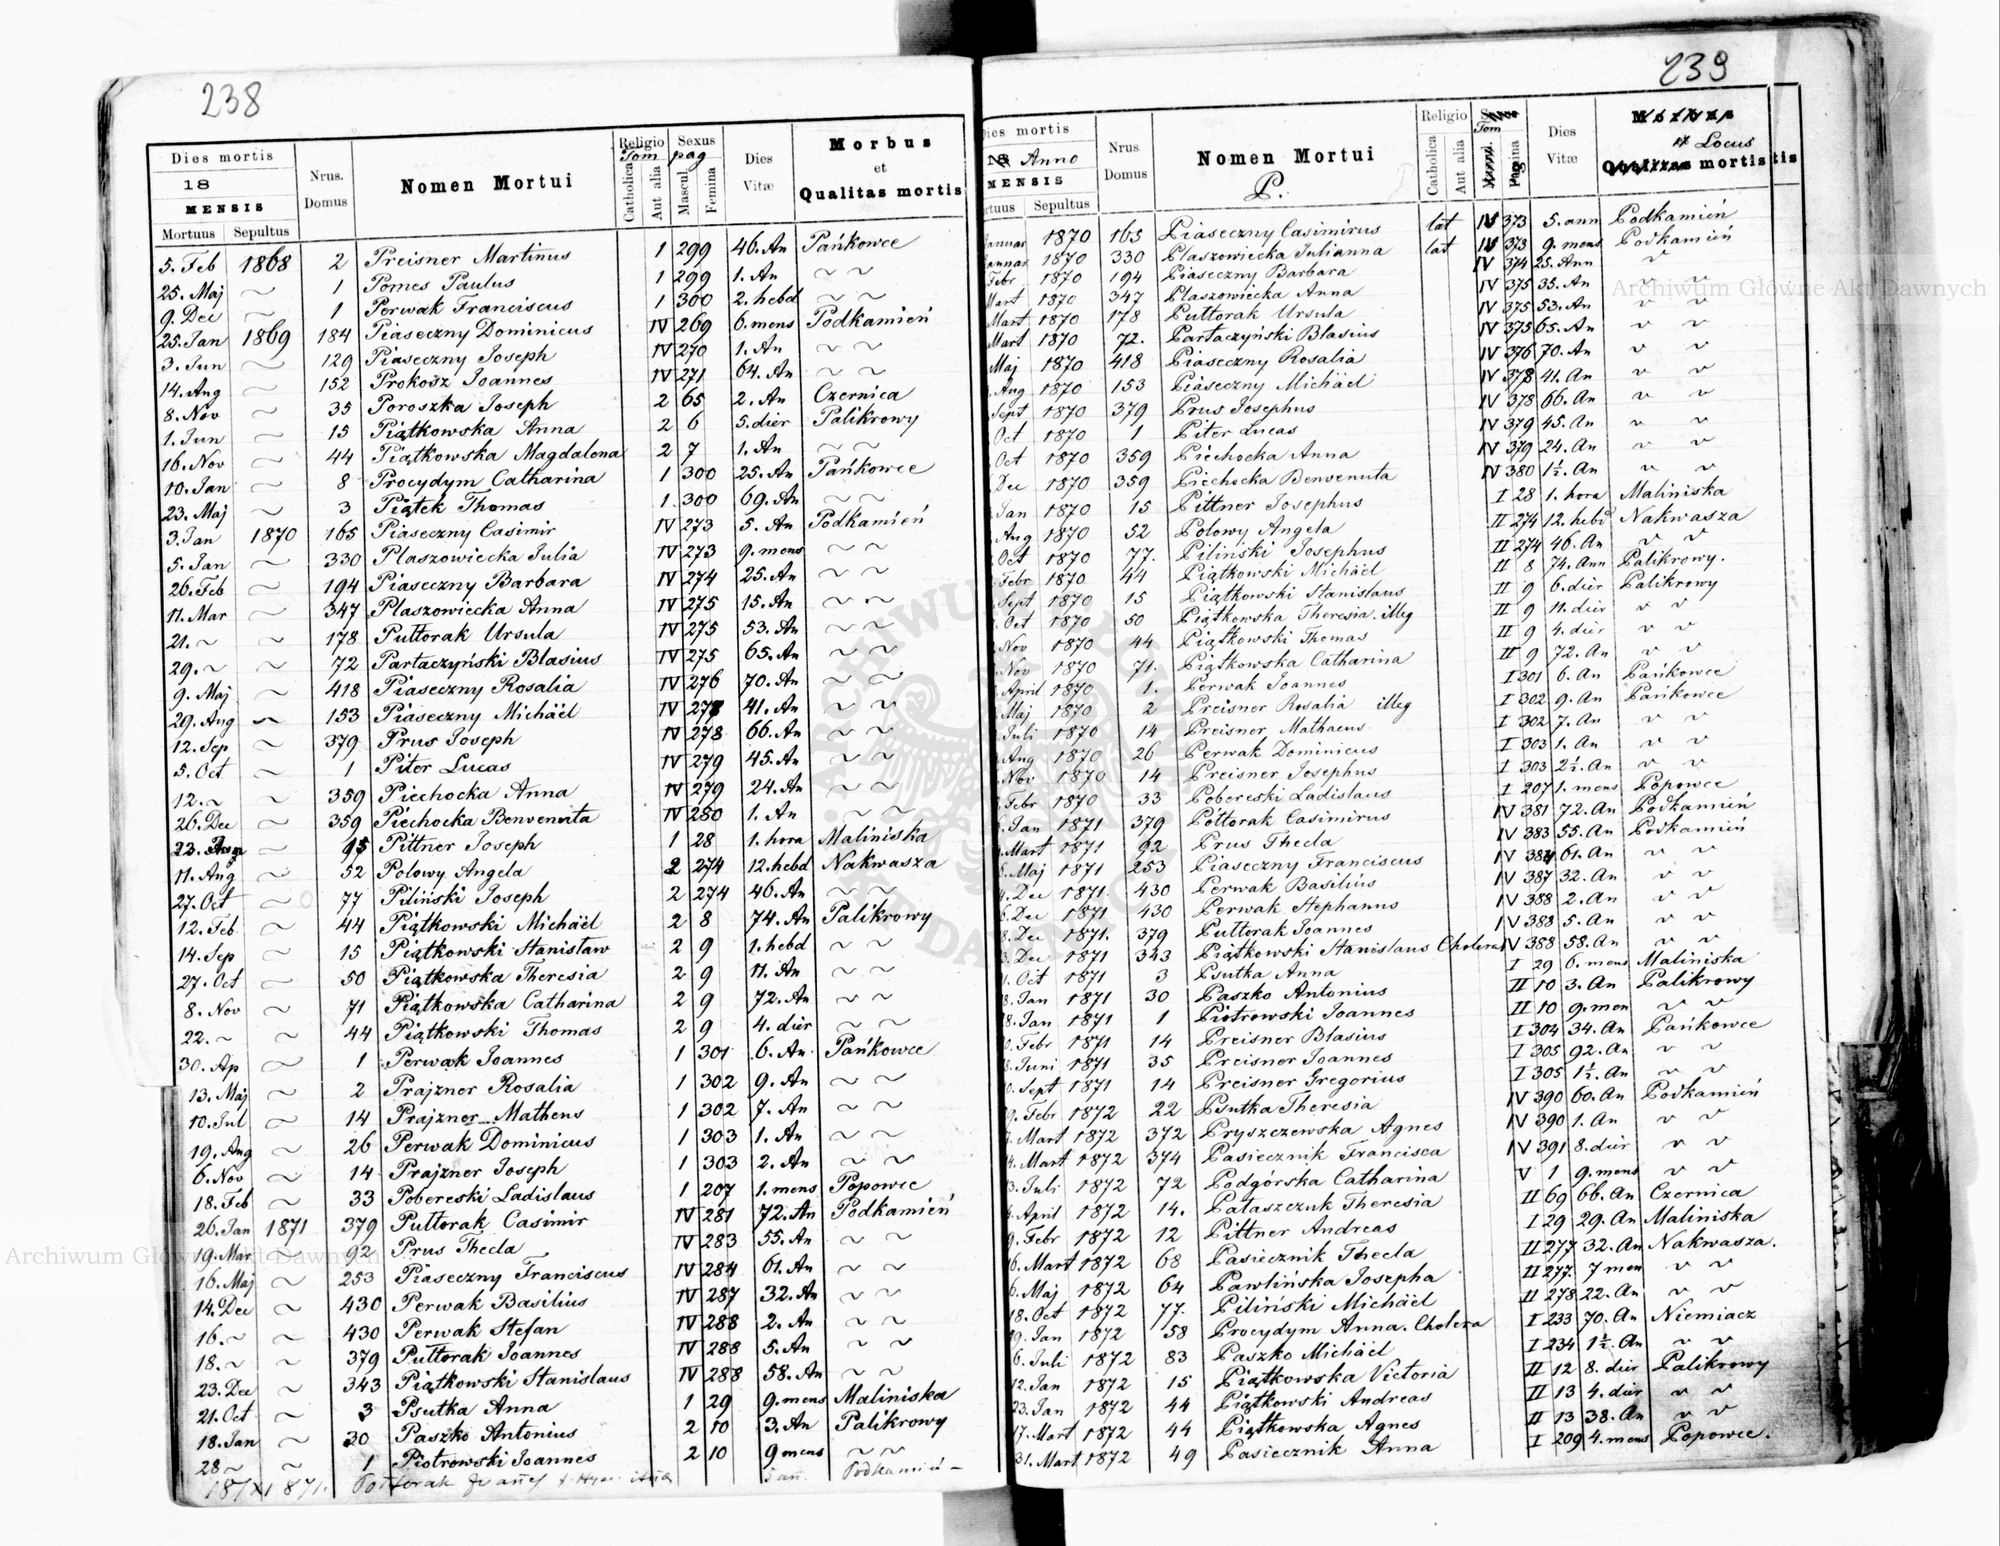 238
Dies mortis
18
MENSIS
Mortuus Sepultus
Nrus. Domus
Nomen Mortui
Religio
Catholica
Aut alia
Tom pag
Sexus
Mascul.
Femina
Dies Vitæ
Morbus et Qualitas mortis
5. Feb 1868 2 Preisner Martinus 1 299 46. An Pańkowce
25. Maj ~ 1 Pomes Paulus 1 299 1. An ~ ~
9. Dec ~ 1 Perwak Franciscus 1 300 2. hebd ~ ~
25. Jan 1869 184 Piaseczny Dominicus IV 269 6. mens Podkamień
3. Jun ~ 129 Piaseczny Joseph IV 270 1. An ~ ~
14. Aug ~ 152 Prokosz Joannes IV 271 64. An ~ ~
8. Nov ~ 35 Poroszka Joseph 2 65 2. An Czernica
1. Jun ~ 15 Piątkowska Anna 2 6 5. dier Palikrowy
16. Nov ~ 44 Piątkowska Magdalena 2 7 1. An ~ ~
10. Jan ~ 8 Procydym Catharina 1 300 25. An Pańkowce
23. Maj ~ 3 Piątek Thomas 1 300 69. An ~ ~
3. Jan 1870 165 Piaseczny Casimir IV 273 5. An Podkamień
5. Jan ~ 330 Płaszowiecka Julia IV 273 9. mens ~ ~
26. Feb ~ 194 Piaseczny Barbara IV 274 25. An ~ ~
11. Mar ~ 347 Płaszowiecka Anna IV 275 15. An ~ ~
21. ~ ~ 178 Puttorak Ursula IV 275 53. An ~ ~
29. ~ ~ 72 Partaczyński Blasius IV 275 65. An ~ ~
9. Maj ~ 418 Piaseczny Rosalia IV 276 70. An ~ ~
29. Aug ~ 153 Piaseczny Michäel IV 278 41. An ~ ~
12. Sep ~ 379 Prus Joseph IV 278 66. An ~ ~
5. Oct ~ 1 Piter Lucas IV 279 45. An ~ ~
12. ~ ~ 359 Piechocka Anna IV 279 24. An ~ ~
26. Dec ~ 359 Piechocka Benvenuta IV 280 1. An ~ ~
23. ~ 15 Pittner Joseph 1 28 1. hora Maliniska
11. Aug ~ 52 Polowy Angela 2 274 12. hebd Nakwasza
27. Oct ~ 77 Piliński Joseph 2 274 46. An ~ ~
12. Feb ~ 44 Piątkowski Michäel 2 8 74. An Palikrowy
14. Sep ~ 15 Piątkowski Stanisław 2 9 1. hebd ~ ~
27. Oct ~ 50 Piątkowska Theresia 2 9 11. An ~ ~
8. Nov ~ 71 Piątkowska Catharina 2 9 72. An ~ ~
22. ~ ~ 44 Piątkowski Thomas 2 9 4. dier ~ ~
30. Ap ~ 1 Perwak Joannes 1 301 6. An Pańkowce
13. Maj ~ 2 Prajzner Rosalia 1 302 9. An ~ ~
10. Jul ~ 14 Prajzner Matheus 1 302 7. An ~ ~
19. Aug ~ 26 Perwak Dominicus 1 303 1. An ~ ~
6. Nov ~ 14 Prajzner Joseph 1 303 2. An ~ ~
18. Feb ~ 33 Pobereski Ladislaus 1 207 1. mens Popowce
26. Jan 1871 379 Puttorak Casimir IV 281 72. An Podkamień
19. Mar ~ 92 Prus Thecla IV 283 55. An ~ ~
16. Maj ~ 253 Piaseczny Franciscus IV 284 61. An ~ ~
14. Dec ~ 430 Perwak Basilius IV 287 32. An ~ ~
16. ~ ~ 430 Perwak Stefan IV 288 2. An ~ ~
18. ~ ~ 379 Puttorak Joannes IV 288 5. An ~ ~
23. Dec ~ 343 Piątkowski Stanislaus IV 288 58. An ~ ~
21. Oct ~ 3 Psutka Anna 1 29 9. mens Maliniska
18. Jan ~ 30 Paszko Antonius 2 10 3. An Palikrowy
28 ~ ~ 1 Piotrowski Joannes 2 10 9 mens ~ ~
Podkamień
239
Dies mortis
18 Anno
MENSIS
Sepultus
Nrus Domus
Nomen Mortui
P.
Religio
Catholica
Aut alia
Tom
Pagina
Dies Vitæ
Morbus et Locus
Qualitas mortis
tis
Januar 1870 165 Piaseczny Casimirus lat IV 373 5. ann Podkamień
Januar 1870 330 Płaszowiecka Julianna lat IV 373 9. mens Podkamień
Febr 1870 194 Piaseczny Barbara IV 374 25. Ann v
Mart 1870 347 Płaszowiecka Anna IV 375 35. An v v
Mart 1870 178 Puttorak Ursula IV 375 53. An v v
Mart 1870 72. Partaczyński Blasius IV 375 65. An v v
Maj 1870 418 Piaseczny Rosalia IV 376 70. An v v
Aug 1870 153 Piaseczny Michäel IV 378 41. An v v
Sept 1870 379 Prus Josephus IV 378 66. An v v
Oct 1870 1 Piter Lucas IV 379 45. An v v
Oct 1870 359 Piechocka Anna IV 379 24. An v v
Dec 1870 359 Piechocka Benvenuta IV 380 1½. An v v
Jan 1870 15 Pittner Josephus I 28 1. hora Maliniska
Aug 1870 52 Polowy Angela II 274 12. hebd Nakwasza
Oct 1870 77. Piliński Josephus II 274 46. An v v
Febr 1870 44 Piątkowski Michäel II 8 74. Ann Palikrowy.
Sept 1870 15 Piątkowski Stanislaus II 9 6. dier Palikrowy
Oct 1870 50 Piątkowska Theresia. illeg II 9 11. dier v v
Nov 1870 44 Piątkowski Thomas II 9 4. dier v v
Nov 1870 71. Piątkowska Catharina II 9 72. An v v
April 1870 1. Perwak Joannes I 301 6. An Pańkowce
Maj 1870 2 Preisner Rosalia illeg I 302 9. An Pańkowce
Juli 1870 14 Preisner Mathaeus I 302 7. An v v
Aug 1870 26 Perwak Dominicus I 303 1. An v v
Nov 1870 14 Preisner Josephus I 303 2½. An v v
Febr 1870 33 Pobereski Ladislaus I 207 1. mens Popowce
Jan 1871 379 Pottorak Casimirus IV 381 72. An Podkamień
Mart 1871 92 Prus Thecla IV 383 55. An Podkamień
Maj 1871 253 Piaseczny Franciscus IV 384 61. An v v
Dec 1871. 430 Perwak Basilius IV 387 32. An v v
Dec 1871 430 Perwak Stephanus IV 388 2. An v v
Dec 1871. 379 Puttorak Joannes IV 388 5. An v v
Dec 1871 343 Piątkowski Stanislaus Cholera IV 388 58. An v v
Oct 1871 3 Psutka Anna I 29 6. mens Maliniska
Jan 1871 30 Paszko Antonius II 10 3. An Palikrowy
8. Jan 1871 1 Piotrowski Joannes II 10 9. men v v
Febr 1871 14 Preisner Blasius I 304 34. An Pańkowce
Juni 1871 35 Preisner Joannes I 305 92. An v v
Sept 1871 14 Preisner Gregorius I 305 1½. An v v
9. Febr 1872 22 Psutka Theresia IV 390 60. An Podkamień
Mart 1872 372 Pryszczewska Agnes IV 390 1. An v v
4. Mart 1872 374 Pasiecznik Francisca IV 391 8. dier v v
3. Juli 1872 72 Podgórska Catharina V 1 9. mens v v
April 1872 14. Pataszczuk Theresia II 69 66. An Czernica
9. Febr 1872 12 Pittner Andreas I 29 29. An Maliniska
6. Mart 1872 68 Pasiecznik Thecla II 277 32. An Nakwasza.
6. Maj 1872 64 Pawlińska Josepha II 277. 7 men v v
18. Oct 1872 77. Piliński Michäel II 278 22. An v v
19. Jan 1872 58 Procydym Anna. Cholera I 233 70. An Niemiacz
6. Juli 1872 83 Paszko Michäel I 234 1½. An v v
12. Jan 1872 15 Piątkowska Victoria II 12 8. dier Palikrowy
23. Jan 1872 44 Piątkowski Andreas II 13 4. dier v v
17. Mart 1872 44 Piątkowska Agnes II 13 38. An v v
31. Mart 1872 49 Pasiecznik Anna I 209 4. mens Popowce.
Archiwum Główne Akt Dawnych
Archiwum Główne Akt Dawnych